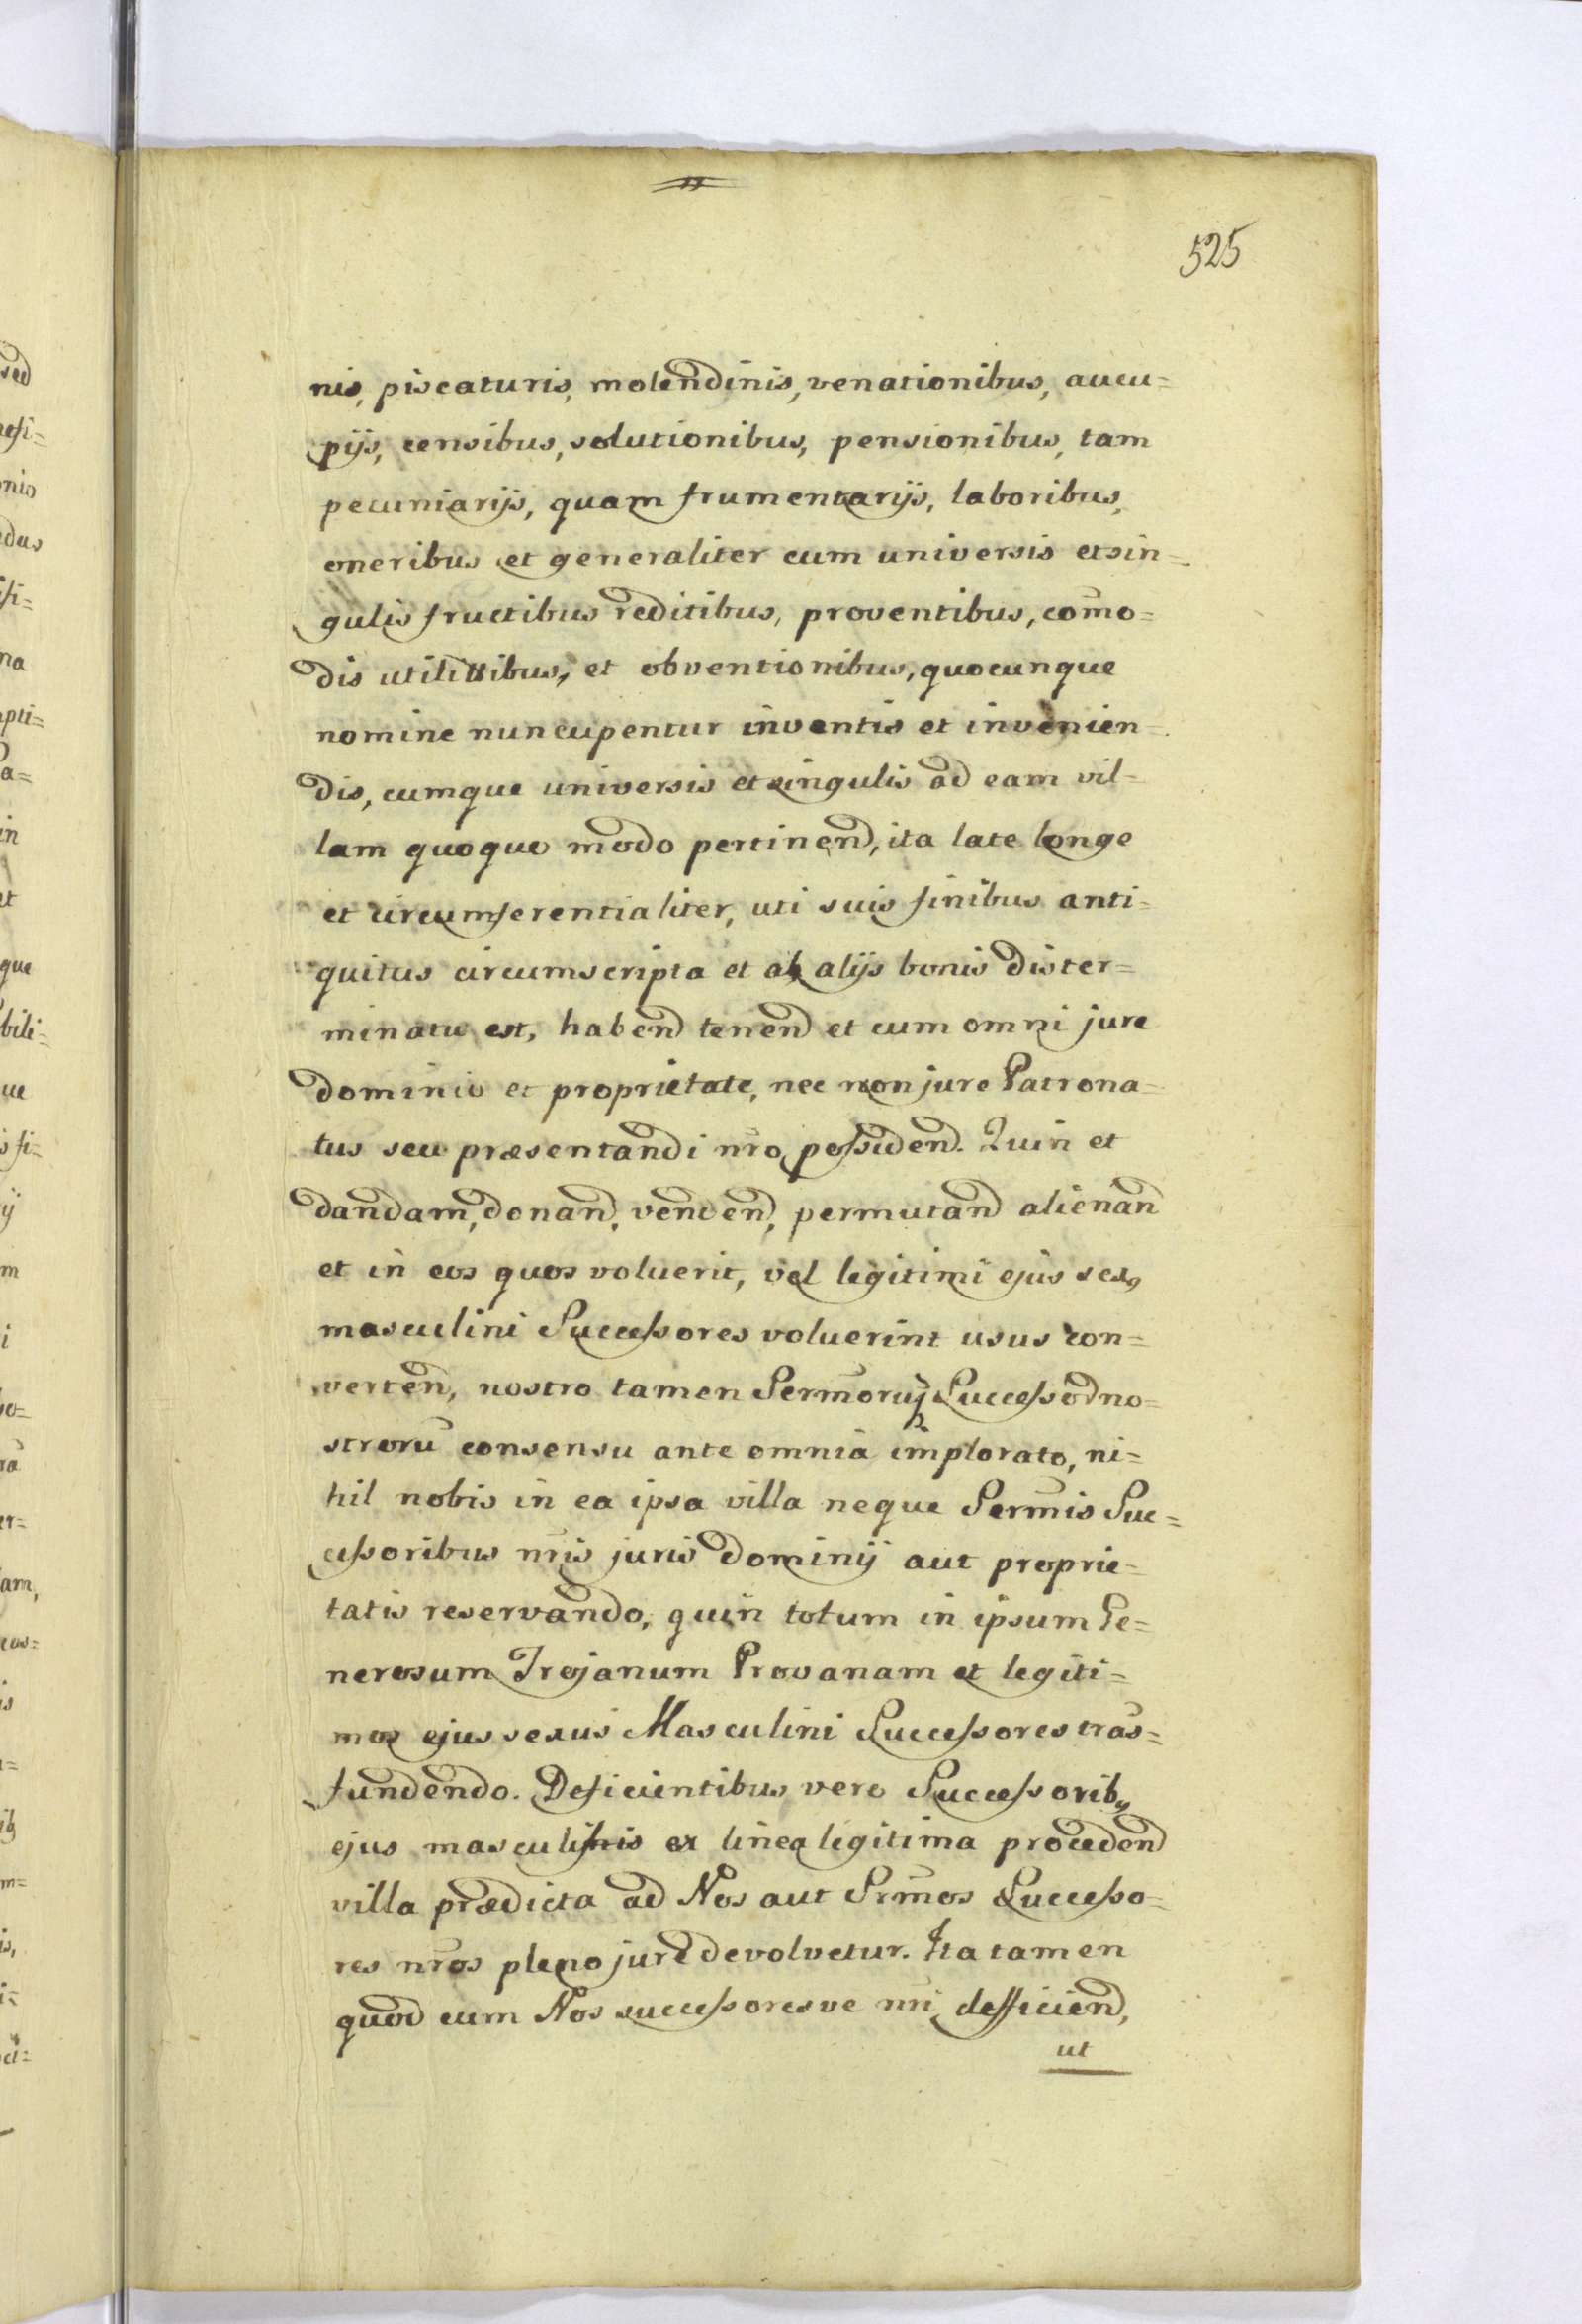 525
nis, piscaturis, molendinis, venationibus, aucu=
pijs, censibus, solutionibus, pensionibus, tam
pecuniarijs, quam frumentarijs, laboribus,
oneribus et generaliter cum universis et sin=
gulis fructibus reditibus, proventibus, com̄o=
dis utilittibus, et obventionibus, quocunque
nomine nuncupentur inventis et invenien=
dis, cumque universis et singulis ad eam vil=
lam quoque modo pertinen̄d, ita late longe
et circumferentialiter, uti suis finibus anti=
quitus circumscripta et ab alijs bonis dister=
minata est, haben̄d tenen̄d et cum omni jure
dominio et proprietate, nec non jure Patrona=
tus seu præsentandi nr̄o possiden̄d. Quin et
dandam, donan̄d, venden̄d, permutan̄d alienan̄d
et in eos quos voluerit, vel legitimi ejus sexꝰ
masculini Successores voluerint usus con=
verten̄d, nostro tamen Serm̄oruꝫ Successōr no=
stroru᷑ consensu ante omnia implorato, ni=
hil nobis in ea ipsa villa neque Serm̄is Suc=
cessoribus nr̄is juris dominij aut proprie=
tatis reservando, quin totum in ipsum Ge=
nerosum Trojanum Provanam et legiti=
mos ejus sexus Masculini Successores tras̄=
fundendo. Deficientibus vero Successorib9
ejus masculinis ex linea legitima proceden̄d
villa prædicta ad Nos aut Srm̄os Successo=
res nr̄os pleno jure devolvetur. Ita tamen
quod cum Nos successoresve nr̄i defficien̄d,
ut